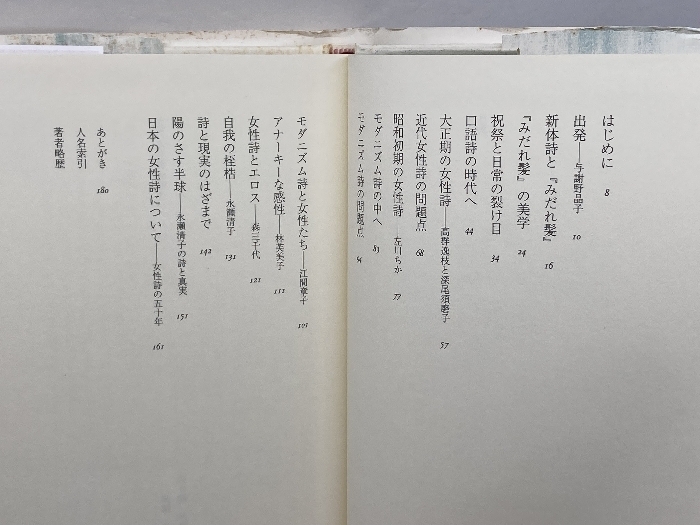 はじめに 8
出発――与謝野晶子 10
新体詩と『みだれ髪』 16
『みだれ髪』の美学 24
祝祭と日常の裂け目 34
口語詩の時代へ 44
大正期の女性詩――高群逸枝と深尾須磨子 57
近代女性詩の問題点 68
昭和初期の女性詩――左川ちか 77
モダニズム詩の中へ 83
モダニズム詩の問題点 94
モダニズム詩と女性たち――江間章子 101
アナーキーな感性――林芙美子 112
女性詩とエロス――森三千代 121
自我の桎梏――永瀬清子 131
詩と現実のはざまで 142
陽のさす半球――永瀬清子の詩と真実 151
日本の女性詩について――女性詩の五十年 161
あとがき 180
人名索引
著者略歴